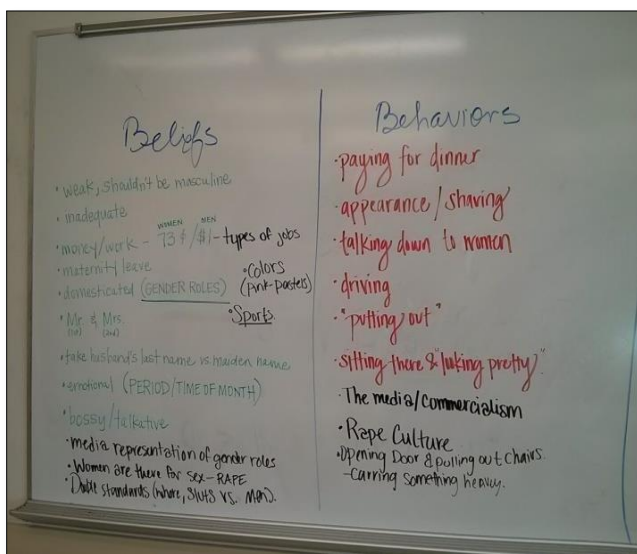 Beliefs
• weak, shouldn't be masculine
• inadequate
WOMEN MEN
• money/work – 73¢/$1 – types of jobs
• maternity leave
• Colors
• domesticated (GENDER ROLES) (pink-pastels)
• Mr. & Mrs. • Sports
(1st) (2nd)
• take husband's last name vs. maiden name
• emotional (PERIOD/TIME OF MONTH)
• bossy/talkative
• media representation of gender roles
• Women are there for sex – RAPE
• Double standards (whore, sluts vs. Men).
Behaviors
• paying for dinner
• appearance/shaving
• talking down to women
• driving
• "putting out"
• sitting there & "looking pretty"
• The media/commercialism
• Rape Culture
• Opening Door & pulling out chairs.
– Carring something heavy.